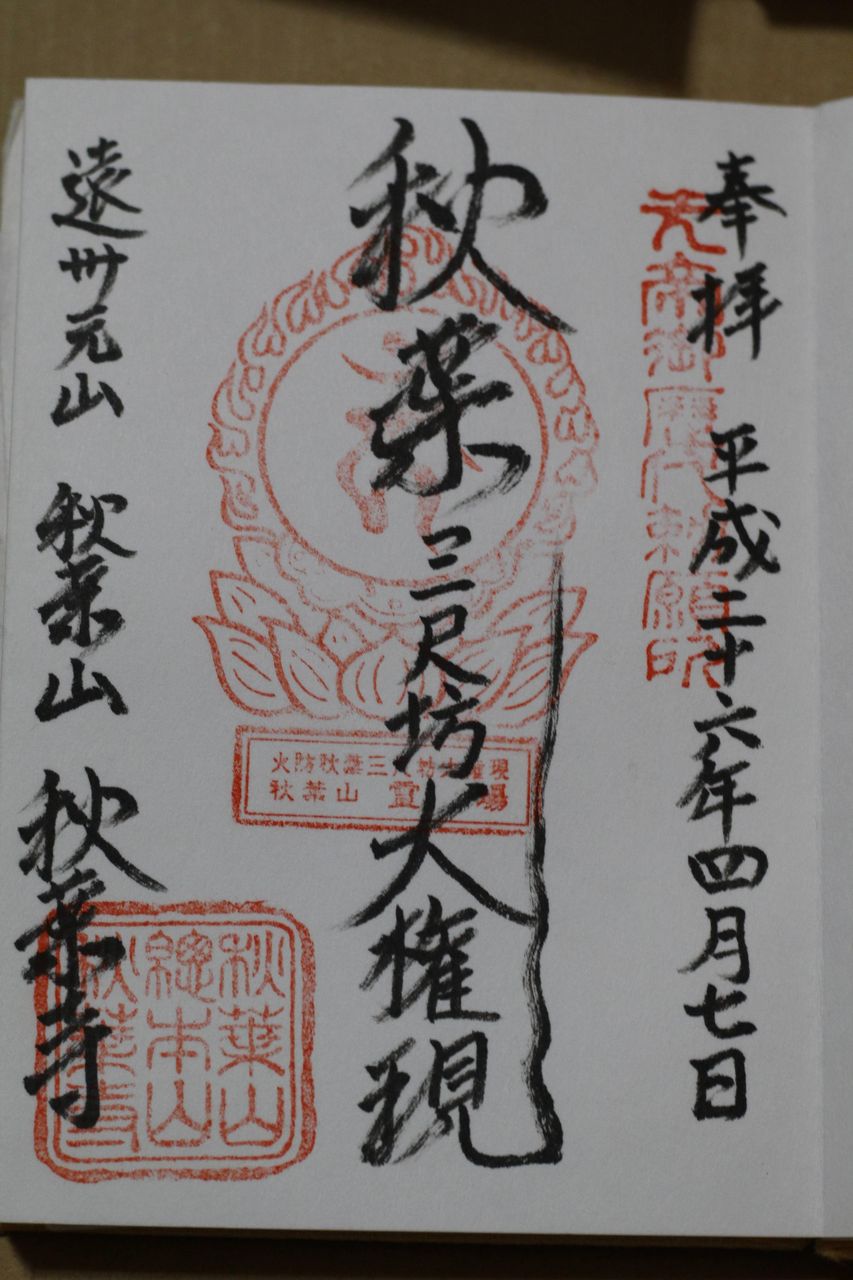 奉拝 平成二十六年四月七日
先帝御歴代勅願所
秋葉三尺坊大権現
火防秋葉三尺坊大権現
秋葉山霊場
遠州元山 秋葉山 秋葉寺
秋葉山
總本山
秋葉寺